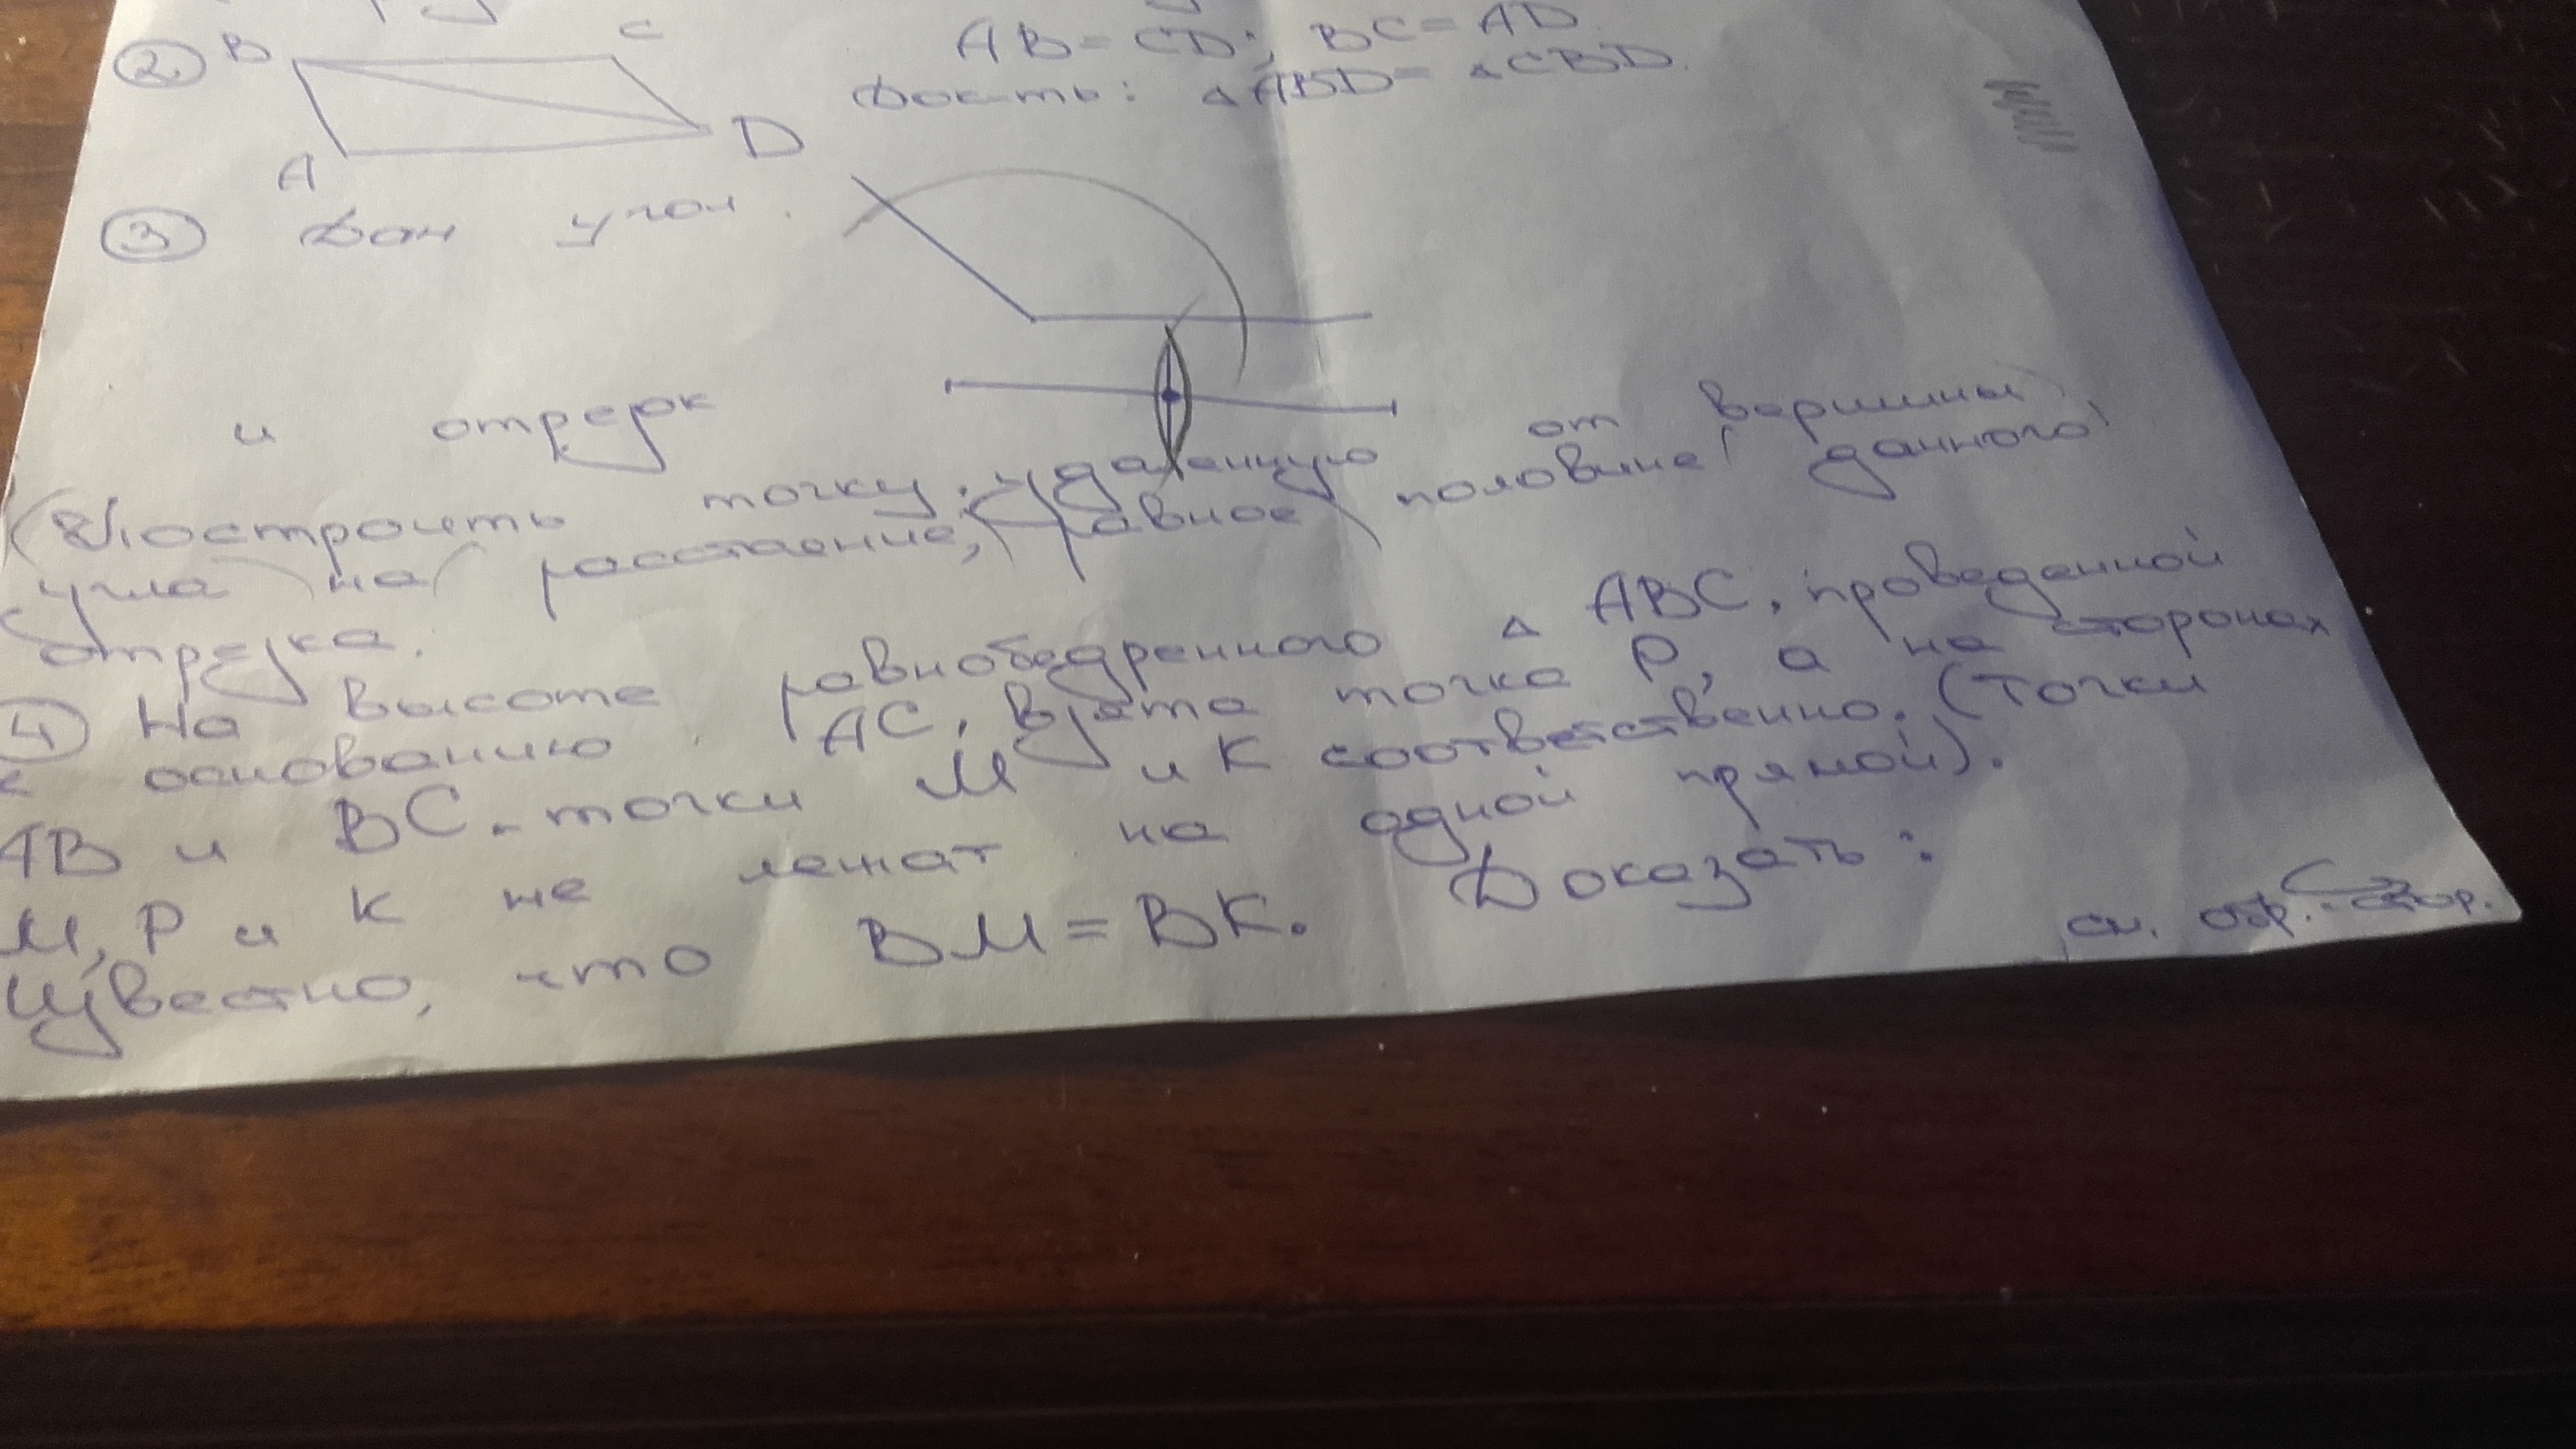 ② B C AB = CD; BC = AD.
Док-ть: △ABD = △CBD.
A D
③ Дан угол.
и отрезок
Построить точку, удаленную от вершины
угла на расстояние, равное половине данного
отрезка.
④ На высоте равнобедренного △ ABC, проведенной
к основанию AC, взята точка P, а на сторонах
AB и BC - точки M и K соответственно. (Точки
M, P и K не лежат на одной прямой).
Известно, что BM = BK. Доказать:
см. обр. стор.